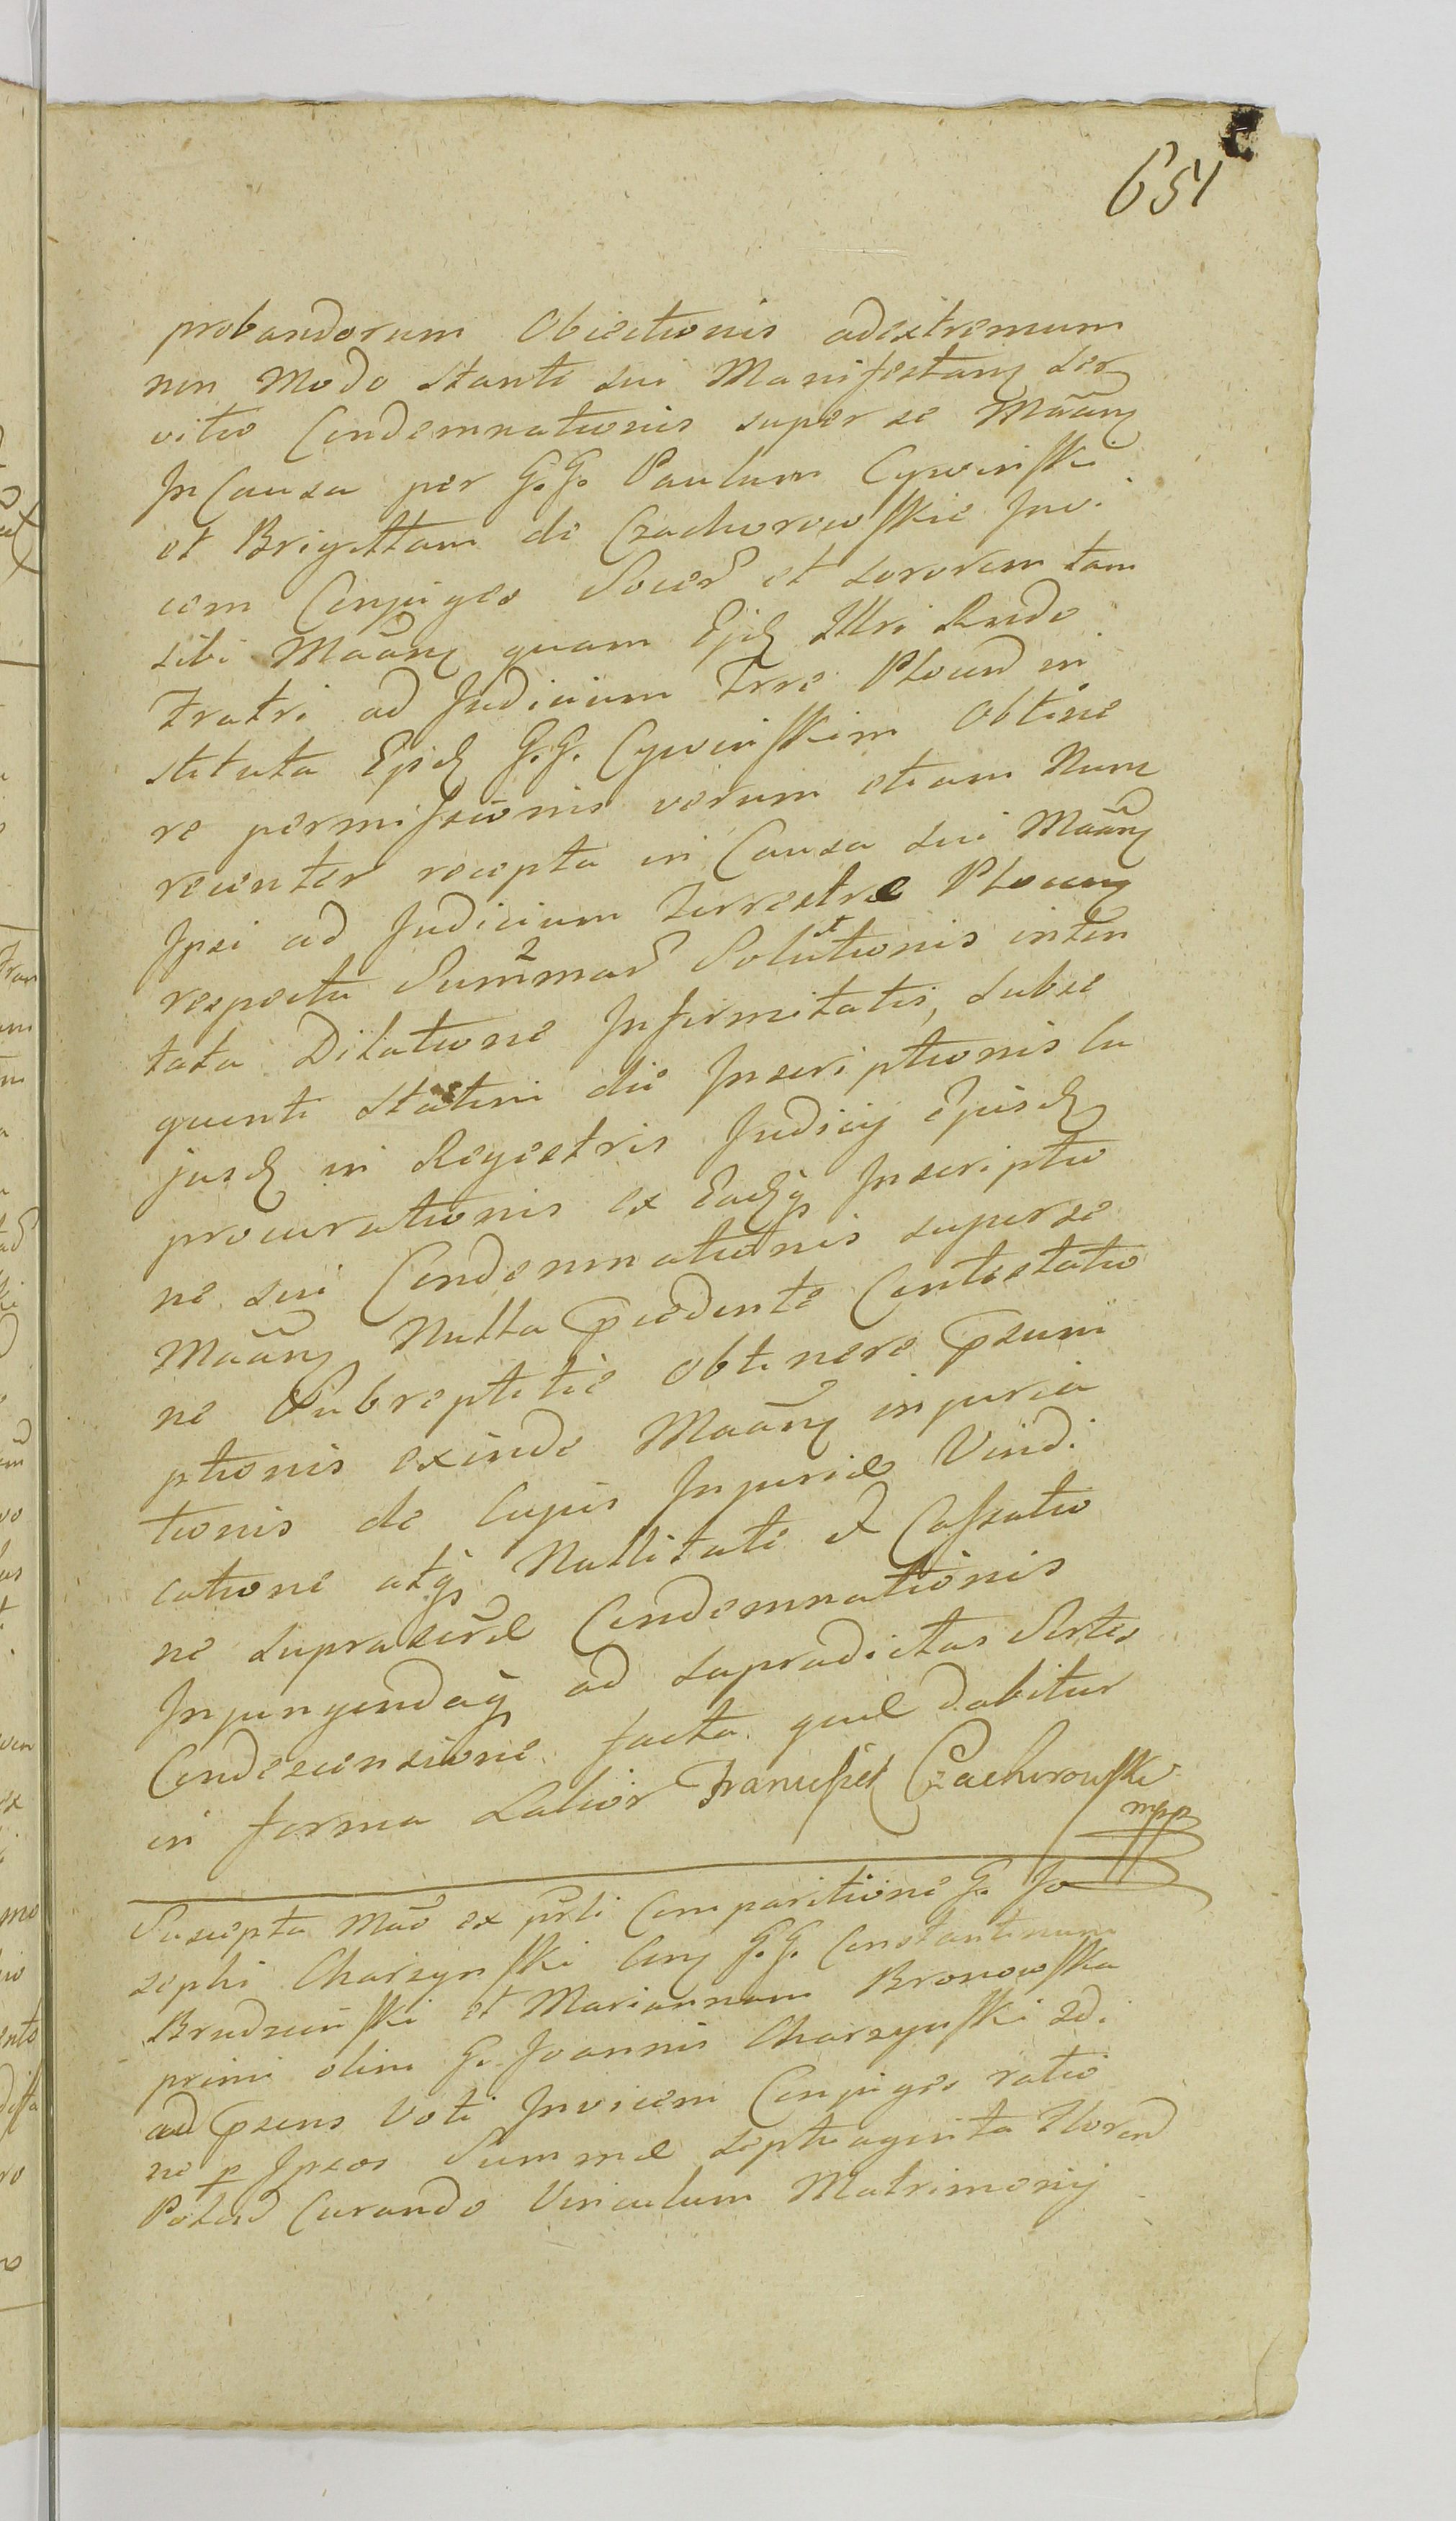 651
probandorum Obiectionis adextremum
non Modo Stante sui Manifestanꝫ Ser
vitio Condemnationis super se Mããnꝫ
In Causa per G. G. Paulum Cywinski
et Brigittam de Czachorowskie Invi
cem Conjuges Socer et sororem tam
sibi Mããnꝫ quam Ejdꝫ Illri Rndo
Fratri ad Judicium Trre Plocen in
stituta Epidꝫ G. G. Cywinskim Obtine
re permissionis verum etiam Nunc
recenter recepta in Causa sui Mããnꝫ
Ipsi ad Judicium Terrestre Plocenꝫ
respectu Summar Solutionis inten
tata Dilatione Infirmitatis, subse
quenti Statim die Inscriptionis Cu
jusdꝫ in Regestris Judicij Ejusdꝫ
procurationis ex Eadꝫq Inscriptio
ne sui Condemnationis super se
Mããnꝫ Nulla pcedente Contestatio
ne Subreptitie obtinere psum
ptionis exinde Mããnꝫ injuria
tionis de Cujus Injuriæ Vindi
catione atq Nullitate et Cassatio
ne suprascræ Condemnationis
Injungendaq ad supradictas Partes
Condescensione facta quæ dabitur
in forma Latior Franciszek Czachorowski
mpp
Suscepta Mão ex prli Comparitione G. Jo
sephi Charzynski Conꝫ G. G. Constantinum
Brudzinski et Mariannam Bronowska
primi olim G. Joannis Charzynski 2di
ad psens Voti Invicem Conjuges ratio
ne p Ipsos Summæ Septuaginta Floren
Polad Curando Vinculum Matrimonij